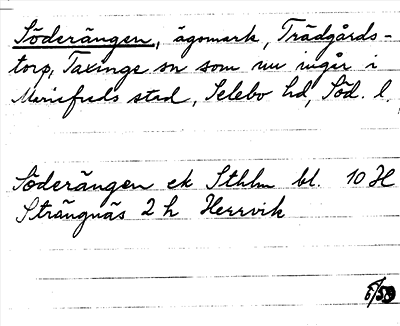 Söderängen, ägomark, Trädgårds-
torp, Taxinge sn som nu ingår i
Mariefreds stad, Selebo hd, Söd. l.
Söderängen ek Sthlm bl. 10 H
Strängnäs 2 h Herrvik